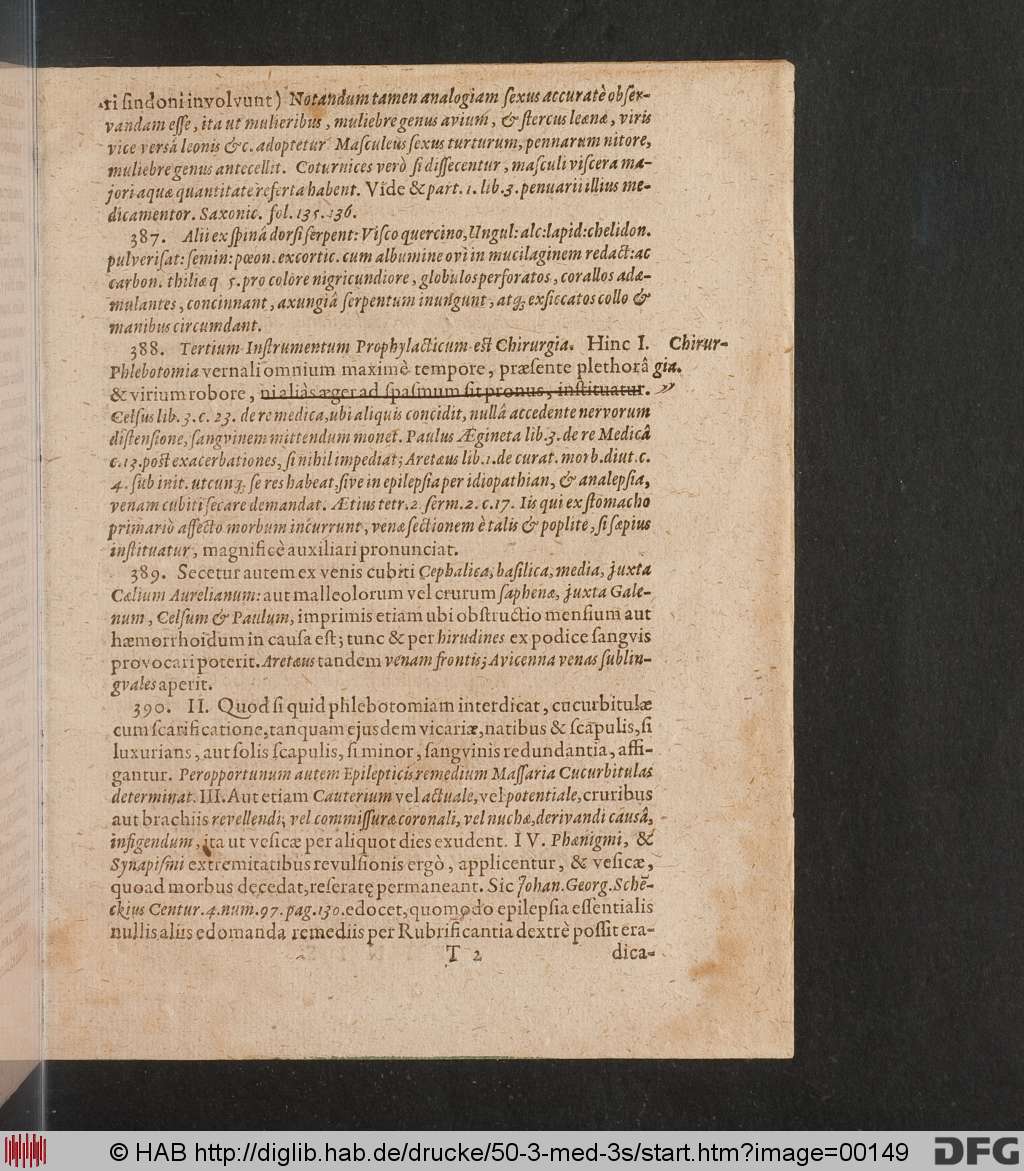 ri sindoni involvunt) Notandum tamen analogiam sexus accuratè obser-
vandam esse, ita ut mulieribus, muliebre genus avium, & stercus leænæ, viris
vice versâ leonis &c. adoptetur Masculeus sexus turturum, pennarum nitore,
muliebre genus antecellit. Coturnices verò si dissecentur, masculi viscera ma-
jori aquæ quantitate referta habent. Vide & part. 1. lib. 3. penuarii illius me-
dicamentor. Saxonic. fol. 135. 136.
387. Alii ex spinâ dorsi serpent: Visco quercino, Ungul: alc: lapid: chelidon.
pulverisat: semin: pœon. excortic. cum albumine ovi in mucilaginem redact: ac
carbon. thiliæ q. s. pro colore nigricundiore, globulos perforatos, corallos adæ-
mulantes, concinnant, axungiâ serpentum inungunt, atq; exsiccatos collo &
manibus circumdant.
388. Tertium Instrumentum Prophylacticum est Chirurgia. Hinc I. Chirur-
Phlebotomia vernali omnium maximè tempore, præsente plethorâ gia.
& virium robore, ni aliàs æger ad spasmum sit pronus, instituatur.
Celsus lib. 3. c. 23. de re medica, ubi aliquis concidit, nullâ accedente nervorum
distensione, sangvinem mittendum monet. Paulus Ægineta lib. 3. de re Medicâ
c. 13. post exacerbationes, si nihil impediat; Aretæus lib. 1. de curat. morb. diut. c.
4. sub init. utcunq; se res habeat, sive in epilepsia per idiopathian, & analepsia,
venam cubiti secare demandat. Ætius tetr. 2. serm. 2. c. 17. Iis qui ex stomacho
primariò affecto morbum incurrunt, venæ sectionem è talis & poplite, si sæpius
instituatur, magnificè auxiliari pronunciat.
389. Secetur autem ex venis cubiti Cephalica, basilica, media, juxta
Cælium Aurelianum: aut malleolorum vel crurum saphenæ, juxta Gale-
num, Celsum & Paulum, imprimis etiam ubi obstructio mensium aut
hæmorrhoidum in causa est; tunc & per hirudines ex podice sangvis
provocari poterit. Aretæus tandem venam frontis; Avicenna venas sublin-
gvales aperit.
390. II. Quod si quid phlebotomiam interdicat, cucurbitulæ
cum scarificatione, tanquam ejusdem vicariæ, natibus & scapulis, si
luxurians, aut solis scapulis, si minor, sangvinis redundantia, affi-
gantur. Peropportunum autem Epilepticis remedium Massaria Cucurbitulas
determinat. III. Aut etiam Cauterium vel actuale, vel potentiale, cruribus
aut brachiis revellendi, vel commissuræ coronali, vel nuchæ, derivandi causâ,
infigendum, ita ut vesicæ per aliquot dies exudent. IV. Phœnigmi, &
Synapismi extremitatibus revulsionis ergò, applicentur, & vesicæ,
quoad morbus decedat, reseratę permaneant. Sic Johan. Georg. Schē-
ckius Centur. 4. num. 97. pag. 130. edocet, quomodo epilepsia essentialis
nullis aliis edomanda remediis per Rubrificantia dextrè possit era-
T 2 dica-
© HAB http://diglib.hab.de/drucke/50-3-med-3s/start.htm?image=00149
DFG